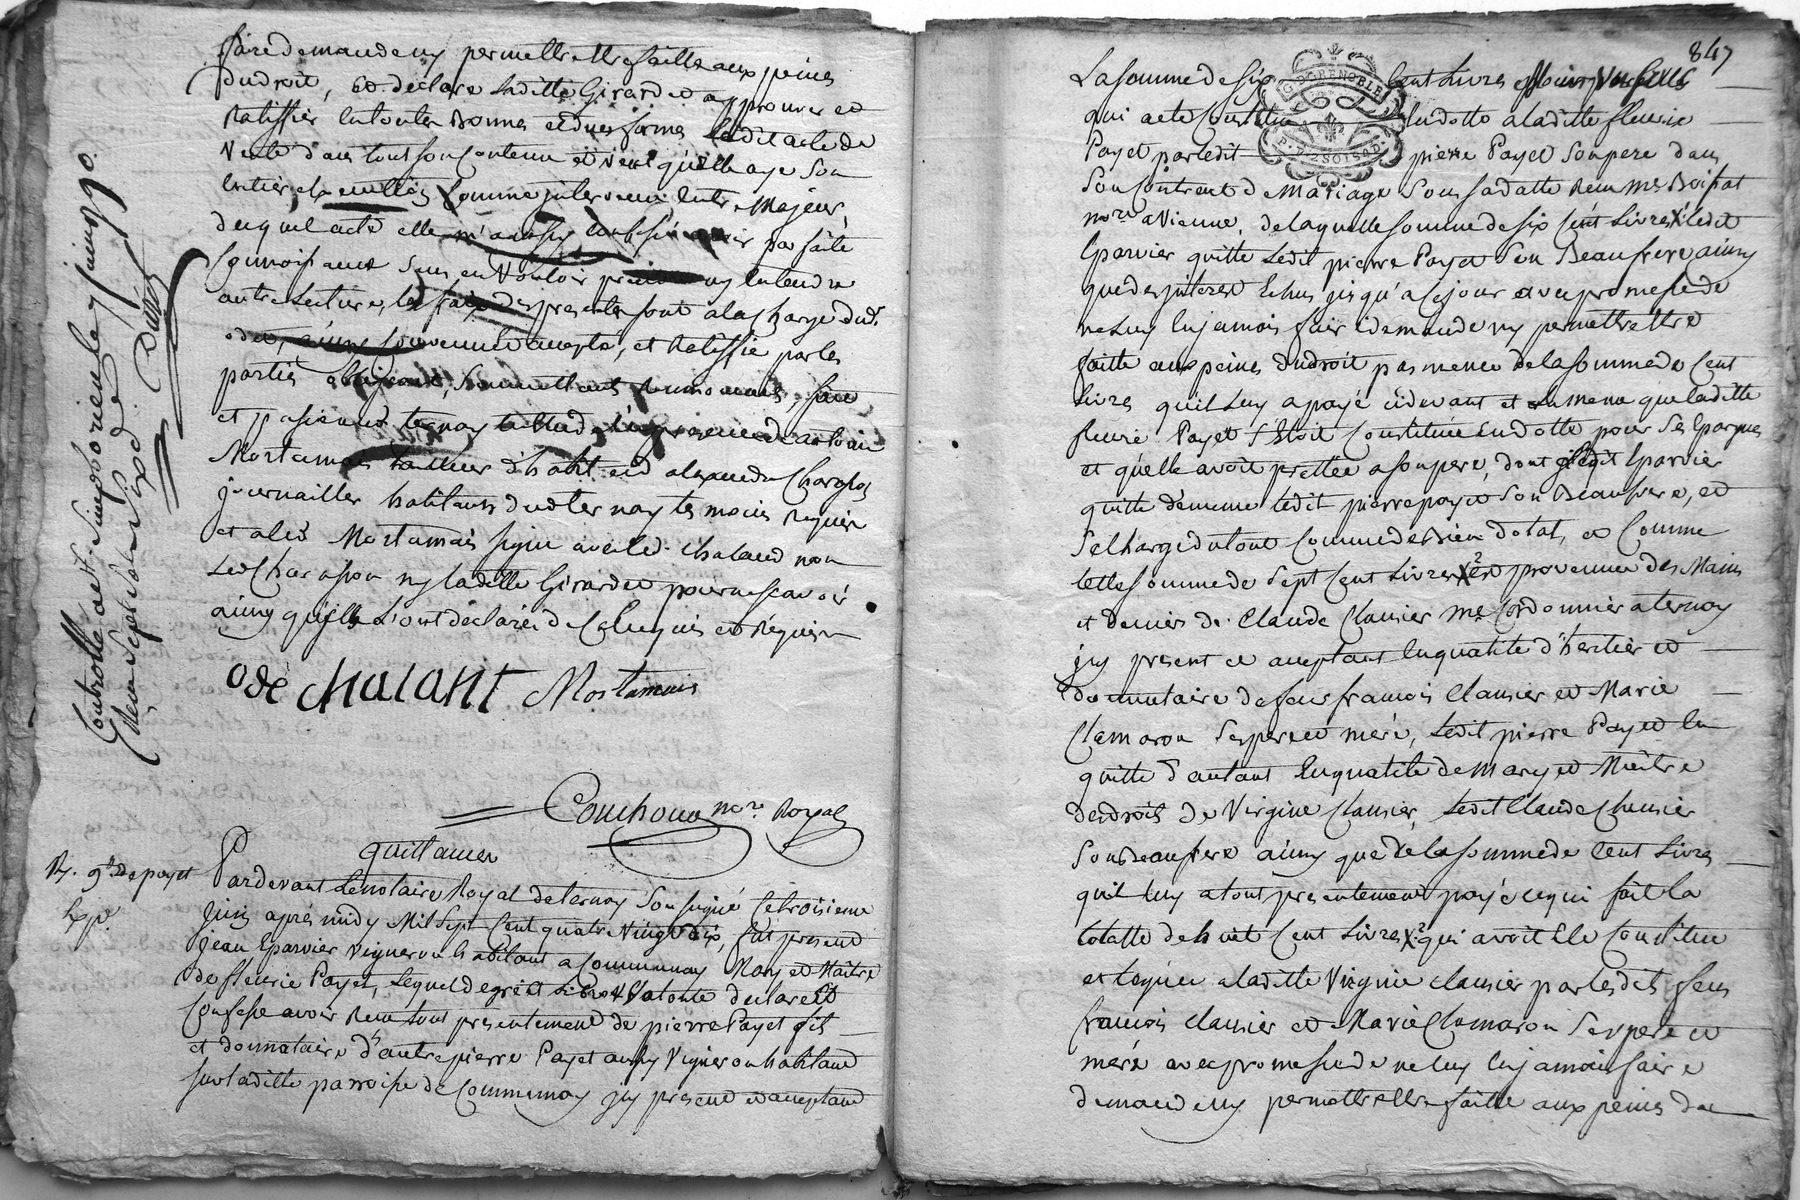 faire demande ny permettre etre faitte aux peines
du droit, et declare laditte Girardet approuver et
Ratiffier en toutes bonnes et dues formes ledit acte de
Vente dans tout son contenu et veut qu'elle aye son
entier
duquel acte elle
autre lecture, les frais des presentes sont a la charge dudt
odet, ainsy convenu accepté, et Ratiffié par les
parties obligeant, soumettant Renonceant, fait
et passé audt ternay
Mortamais tailleur d'habit et
journailler habitants dudt ternay temoins Requis
et ales Mortamais signé avec led. chaland non
Led. Charasson ny laditte Girardet pour ne scavoir
ainsy qu'ils l'ont déclaré de ce enquis et Requis
odé chalant Mortamais
Couchoud nore. Royal
quittance
Pardevant Le notaire Royal de ternay Soussigné Ce troisieme
Juin après midy Mil Sept Cent quatre Vingt dix, fut present
jean Eparvier Vigneron habitant a Communay Mary et Maitre
de fleurie Payet, Lequel de gré et Libre Volonté declare et
Confesse avoir Reçu tout presentement de pierre Payet fils
et donnataire d'autre pierre Payet aussy Vigneron habitant
sur laditte parroisse de Communay jcy present et acceptant
Controllé a St. Simphorien le 7 juin 1790.
Reçu
847
GRENOBLE
La somme de six Cent Livres
qui a eté Constitué en dotte a laditte fleurie
Payet par ledit pierre Payet son pere dans
son Contract de Mariage Sous sa datte Reçu me Boissat
nore a Vienne, de laquelle somme de six Cent Livres Ledit
Eparvier quitte Ledit pierre Payet son Beaufrere ainsy
que des jnterest Echus jusqu'a ce jour avec promesse de
ne luy en jamais faire demande ny permettre etre
faitte aux peines du droit pas meme de la somme de Cent
Livres qu'il luy a payé cidevant et la meme que laditte
fleurie Payet s'etoit Constituée en dotte pour ses Epargnes
et qu'elle avoit prettée a son pere, dont ledit Eparvier
quitte de meme ledit pierre payet son Beaufrere, et
s'echarge du tout Comme de Bien dotal, et Comme
cette somme de Sept Cent Livres est provenue des Mains
et deniers de Claude Clausier me Cordonnier a ternay
jcy present et acceptant en qualité d'heritier et
donnataire de feus françois Clausier et Marie
Clamaron ses pere et mere, Ledit pierre Payet en
quitte d'autant en qualité de mary et Maitre
des droits de Virginie Clausier, Ledit Claude Clausier
son Beaufrere ainsy que de la somme de Cent Livres
qu'il luy a tout presentement payé ce qui fait la
totalle de huit Cent Livres qui avoit eté Constitué
et Leguée a laditte Virginie clausier par lesdits feus
françois clausier et Marie Clamaron ses pere et
mere avec promesse de ne luy en jamais faire
demande ny permettre etre faitte aux peines du